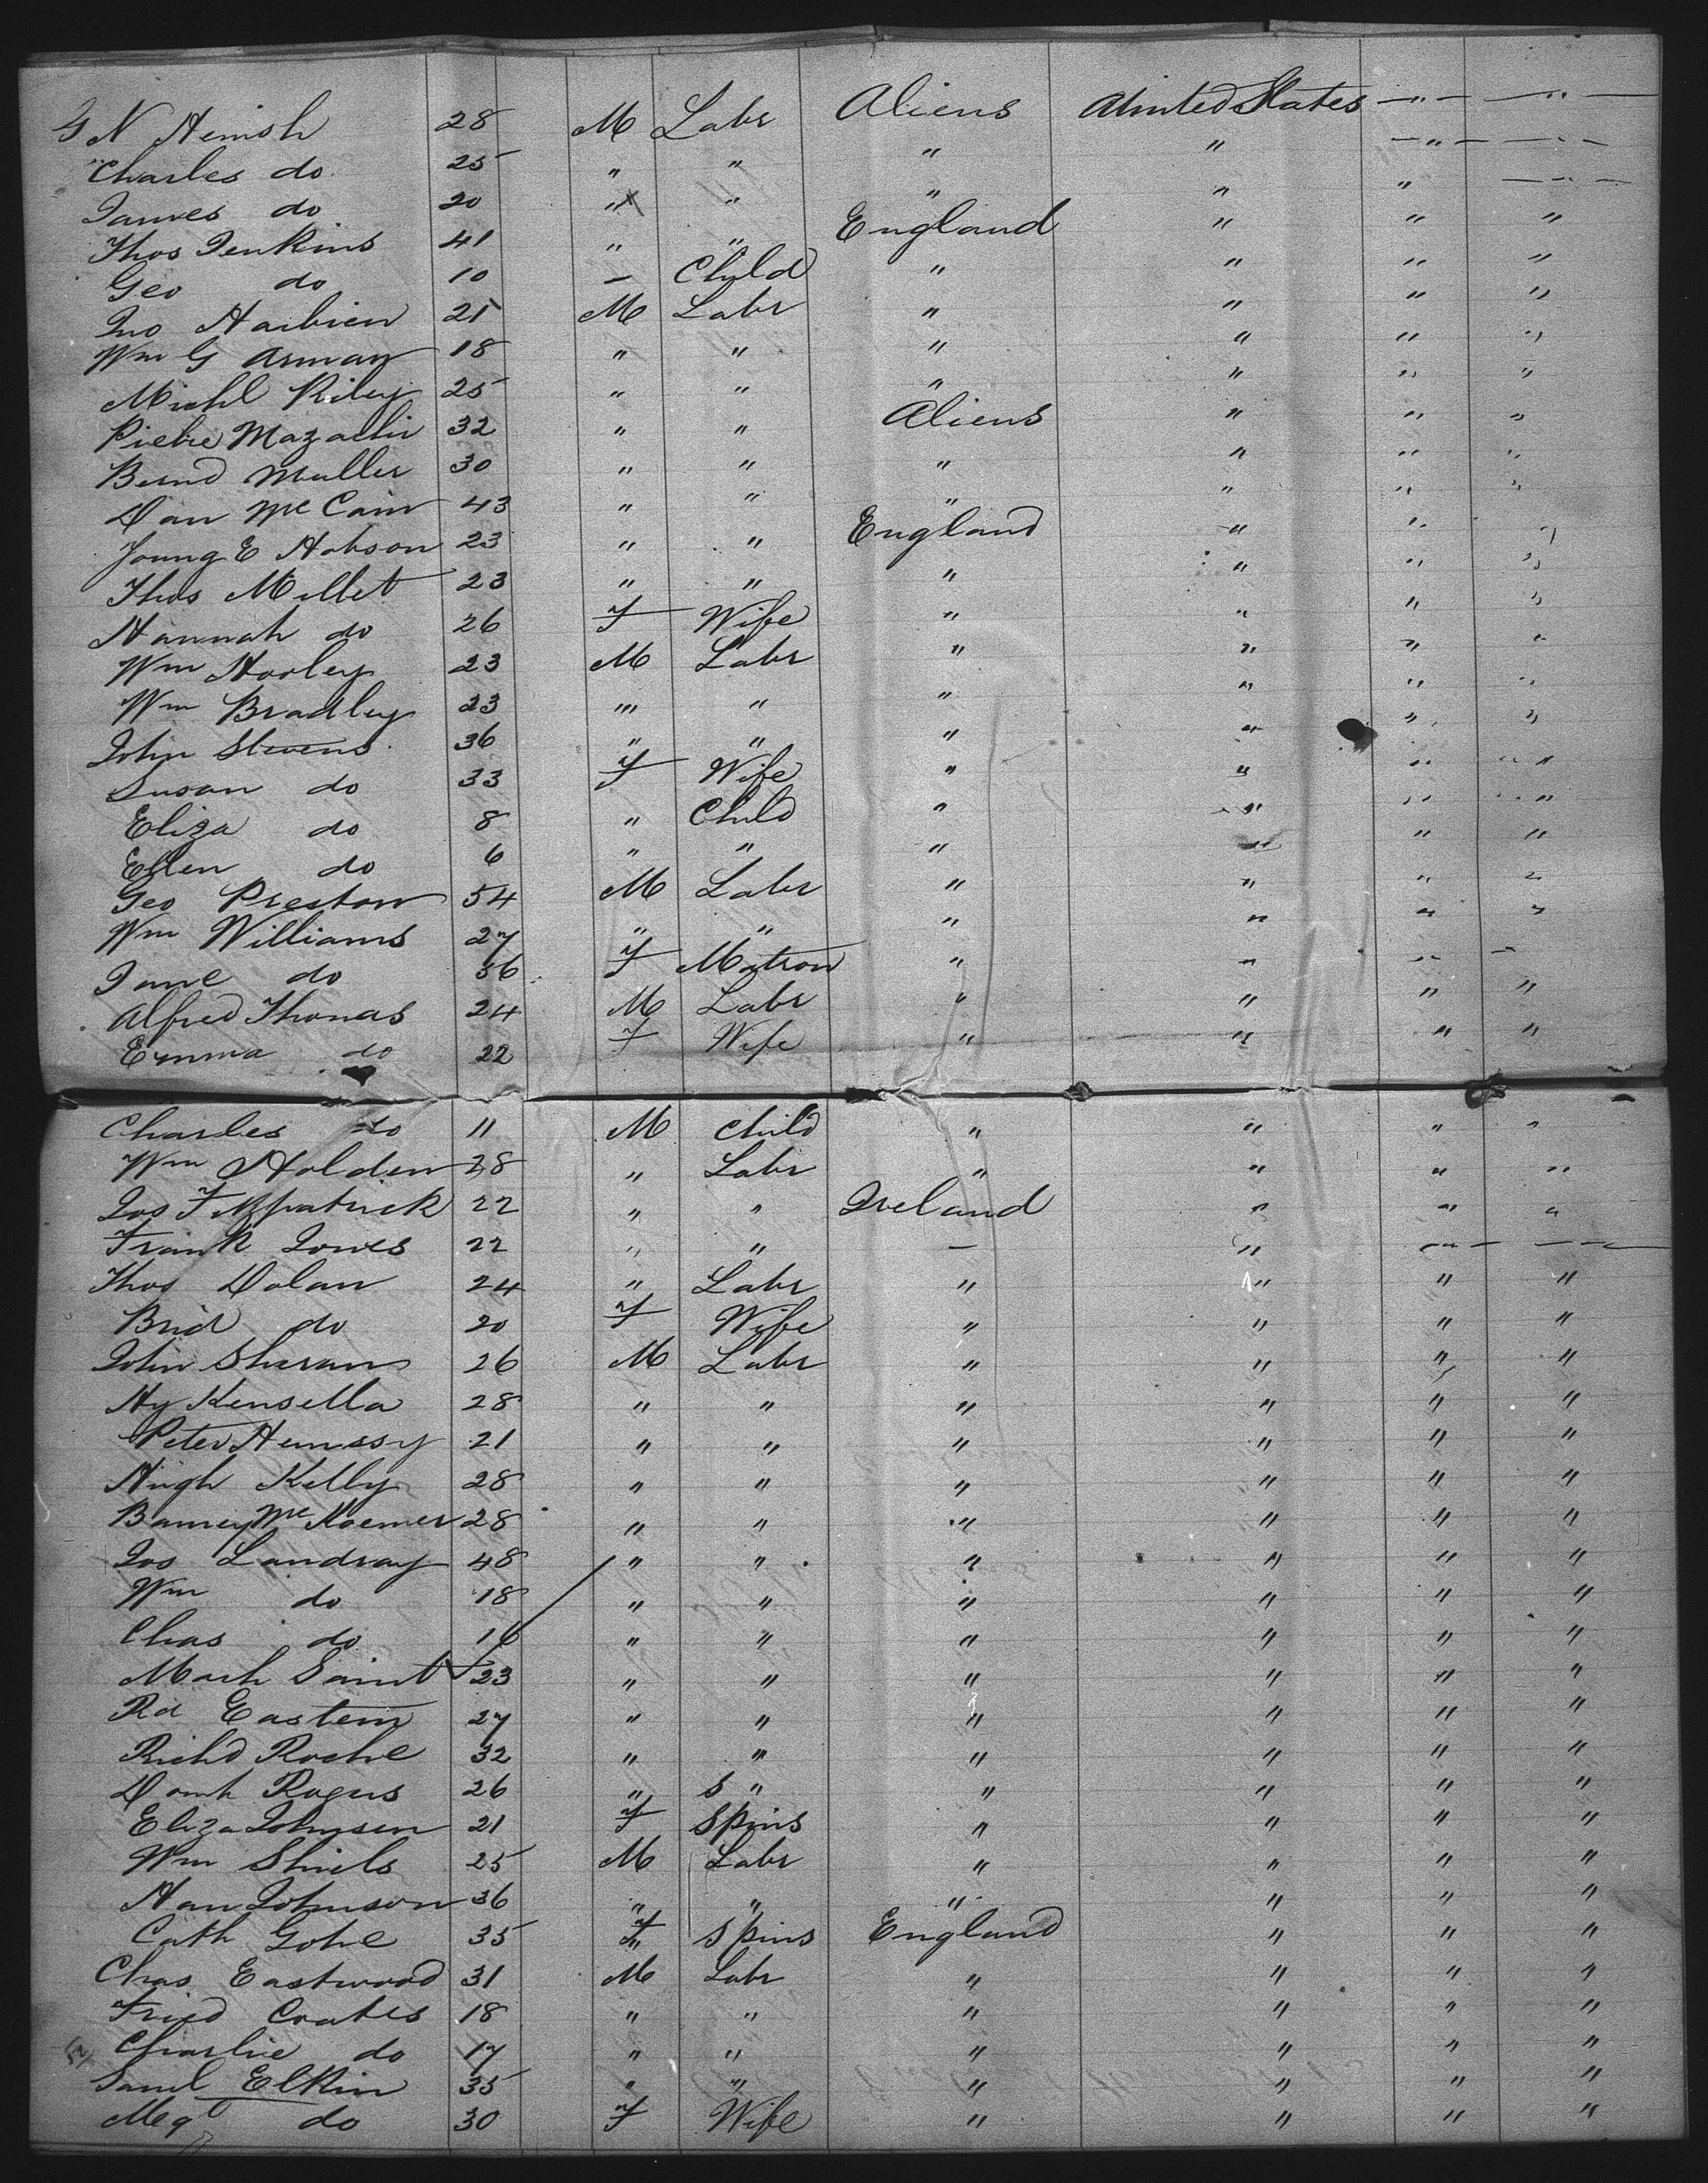 G N Hemsh 28 M Labr Aliens United States " "
Charles do 25 " " " " " "
James do 20 " " " " " "
Thos Jenkins 41 " " England " " "
Geo do 10 - Child " " " "
Jno Harbien 21 M Labr " " " "
Wm G Arman 18 " " " " " "
Michl Riley 25 " " " " " "
Piebre Mazachi 32 " " Aliens " " "
Bernd Muller 30 " " " " " "
Dan Mc Cain 43 " " " " " "
Young E Hobson 23 " " England " " "
Thos Millet 23 " " " " " "
Hannah do 26 F Wife " " " "
Wm Horley 23 M Labr " " " "
Wm Bradley 23 " " " " " "
John Stevens 36 " " " " " "
Susan do 33 F Wife " " " "
Eliza do 8 " Child " " " "
Ellen do 6 " " " " " "
Geo Preston 54 M Labr " " " "
Wm Williams 27 " " " " " "
Jane do 56 F Matron " " " "
Alfred Thomas 24 M Labr " " " "
Emma do 22 F Wife " " " "
Charles do 11 M Child " " " "
Wm Holden 28 " Labr " " " "
Jos Fitzpatrick 22 " " Ireland " " "
Frank Jones 22 " " - " " -
Thos Dolan 24 " Labr " " " "
Brid do 20 F Wife " " " "
John Sharan 26 M Labr " " " "
Hy Kensella 28 " " " " " "
Peter Hennssy 21 " " " " " "
Hugh Kelly 28 " " " " " "
Barney Mc Koemer 28 " " " " " "
Jos Landray 48 " " " " " "
Wm do 18 " " " " " "
Chas do 16 " " " " " "
Mark Saint 23 " " " " " "
Rd Eastern 27 " " " " " "
Richd Roche 32 " " " " " "
Domk Rogers 26 " S " " " " "
Eliza Johnsen 21 F Spins " " " "
Wm Shiels 25 M Labr " " " "
Han Johnson 36 " " " " " "
Cath Gohe 35 F Spins England " " "
Chas Eastwood 31 M Labr " " " "
Fried Coates 18 " " " " " "
Charlie do 17 " " " " " "
Saml Elkin 35 " " " " " "
Meg do 30 F Wife " " " "